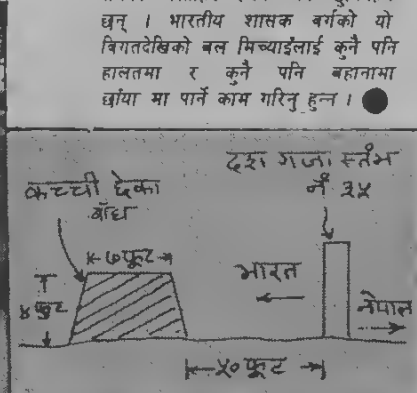 छन् । भारतीय शासक बर्गको यो
बिगतदेखिको बल मिच्याइँलाई कुनै पनि
हालतमा र कुनै पनि बहानामा
छाँया मा पार्ने काम गरिनु हुन्न ।
दश गजा स्तंभ
नं ३५
कच्ची ढेका
बाँध
७ फूट
भारत
नेपाल
४ फुट
५० फूट